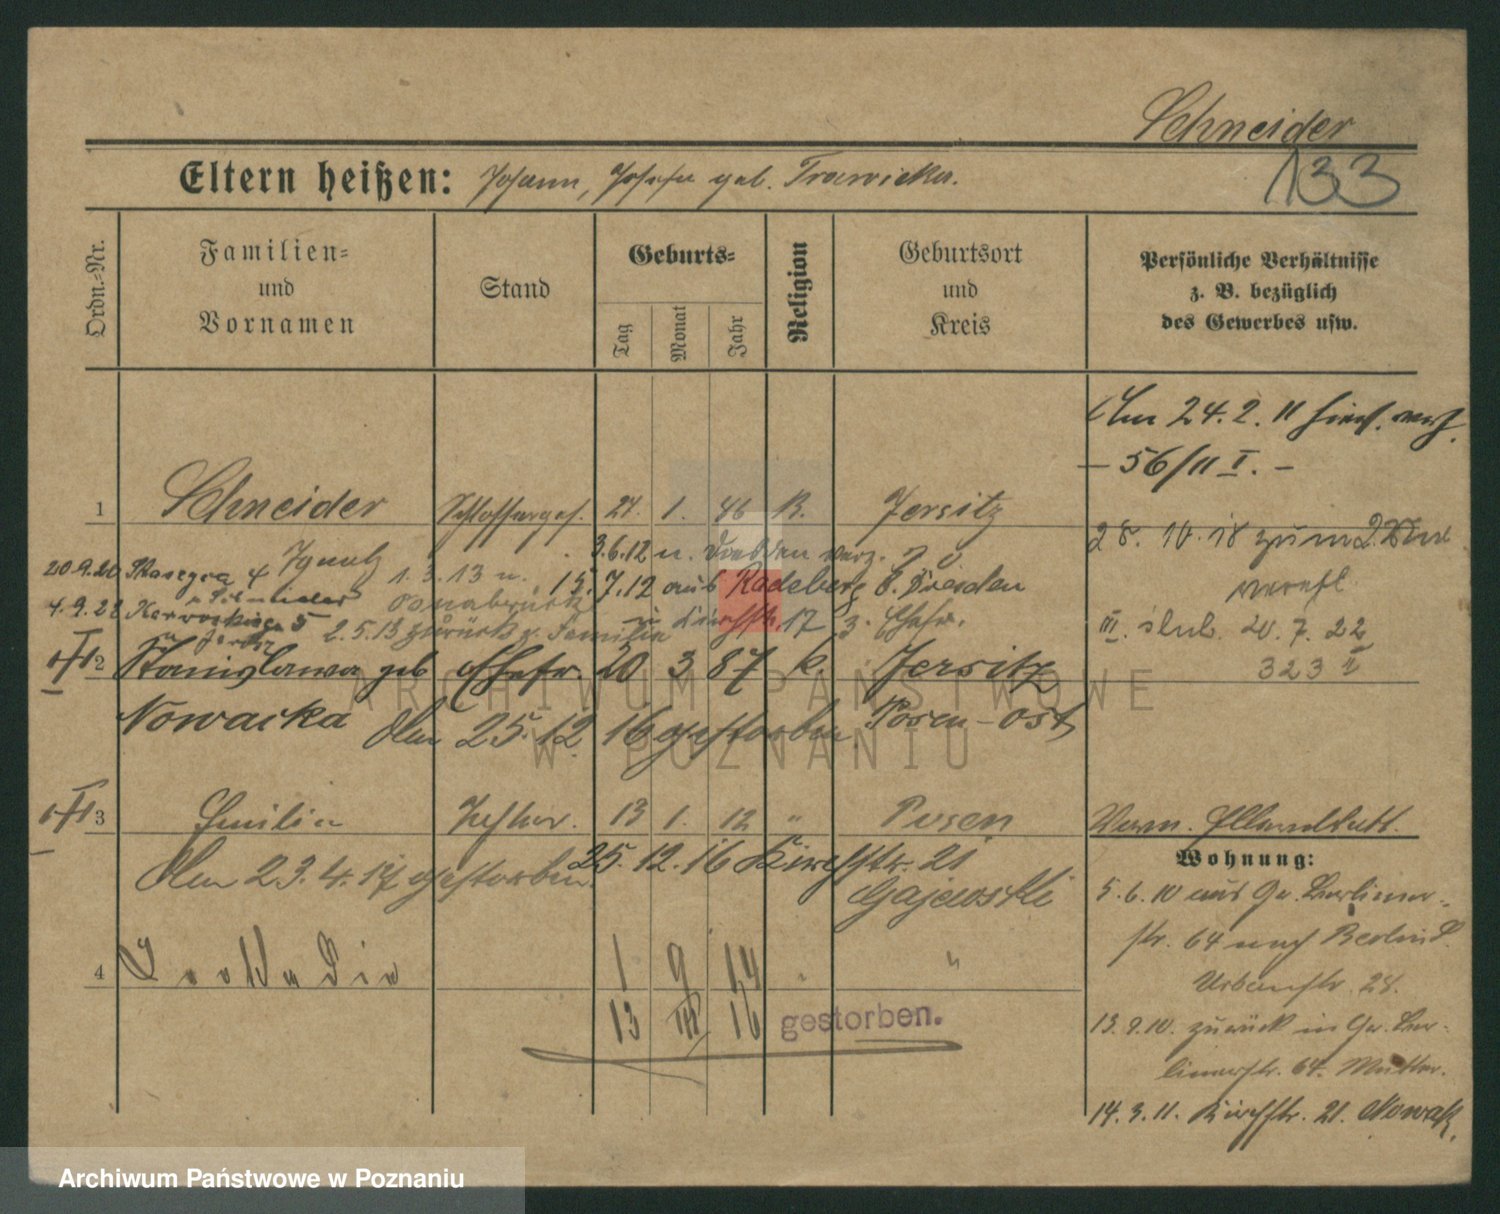 Schneider
133
Eltern heißen: Johann, Josefa geb.
Ordn.-Nr.
Familien- und Vornamen
Stand
Geburts-
Tag
Monat
Jahr
Religion
Geburtsort und Kreis
Persönliche Verhältnisse
z. B. bezüglich
des Gewerbes usw.
Am 24.2.11
— 56/11 I. —
1 Schneider Schlosserges. 27. 1. 46 K. Jersitz
Ignatz
28. 10. 18 zum 2. Mal
vereh.
III. slub. 20. 7. 22
323 II
3.6.12 n. Dresden verz.
20.9.20
1.3.13 n.
15.7.12 aus Radeberg b. Dresden
4.9.22
Osnabrück
Kirchstr. 17 z. Ehefr.
2.5.13 zurück z. Familie
2 Stanislawa geb. Ehefr. 20 3 87 k. Jersitz
Nowacka
Posen-Ost
Am 25.12.16 gestorben
3 Emilie Tochter. 13 1. 12 " Posen
Am 23.4.17 gestorben.
25.12.16 Kirchstr. 21
Gajewski
Wohnung:
5.6.10 aus Gr. Berliner-
str. 64 nach Berlin
Urbanstr. 28.
13.9.10. zurück in Gr. Ber-
linerstr. 64. Mutter.
14.3.11. Kirchstr. 21. Nowak.
4 Leokadia 1 9 14 " "
13 III 16 gestorben.
ARCHIWUM PAŃSTWOWE
W POZNANIU
Archiwum Państwowe w Poznaniu